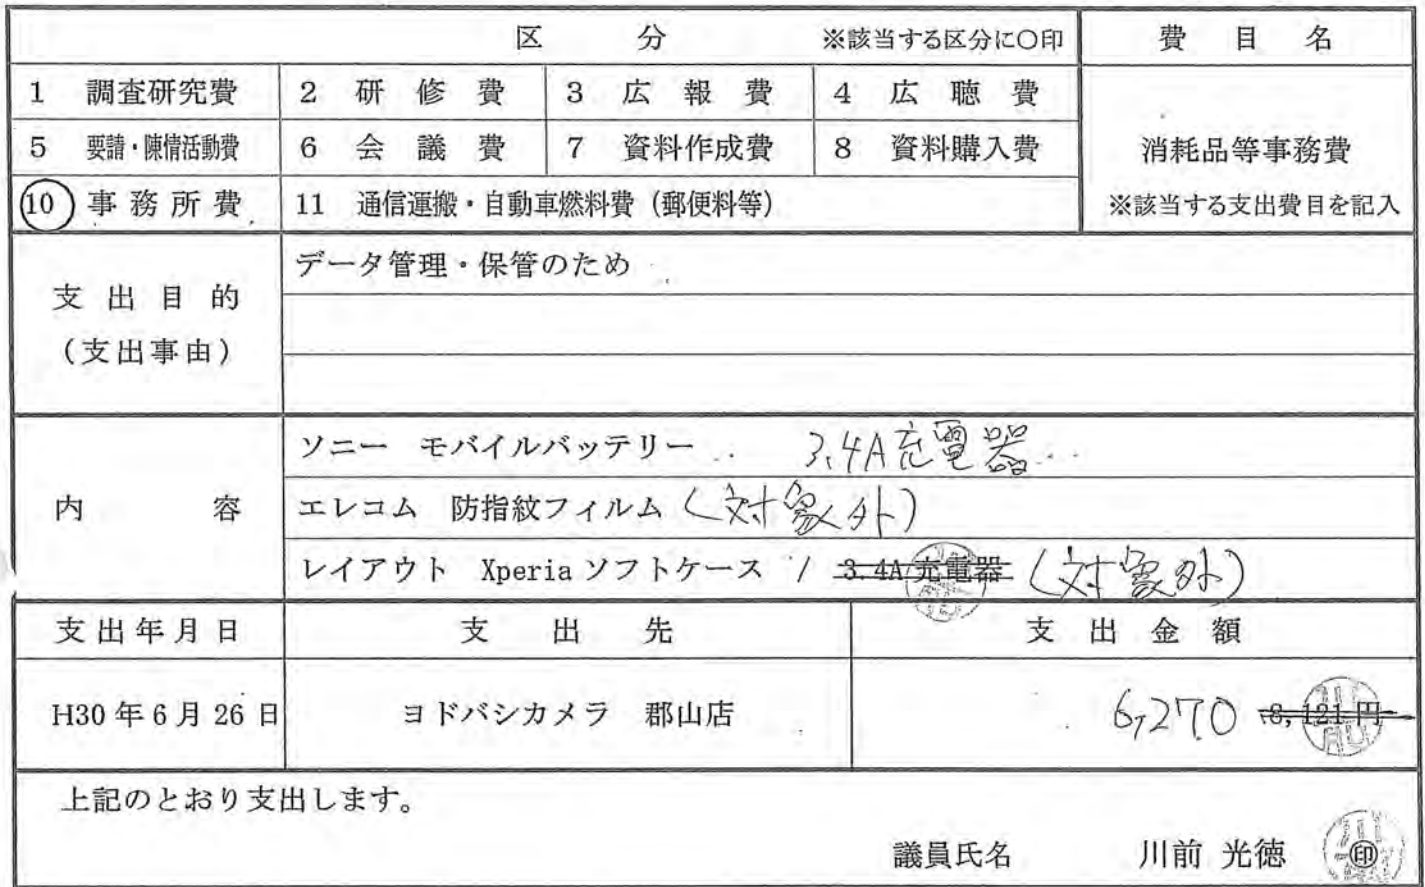 区 分 ※該当する区分に○印 費 目 名
1 調査研究費 2 研 修 費 3 広 報 費 4 広 聴 費
5 要請・陳情活動費 6 会 議 費 7 資料作成費 8 資料購入費 消耗品等事務費
10 事 務 所 費 11 通信運搬・自動車燃料費（郵便料等） ※該当する支出費目を記入
支 出 目 的
（支出事由）
データ管理・保管のため
内 容
ソニー モバイルバッテリー 3.4A充電器
エレコム 防指紋フィルム（対象外）
レイアウト Xperia ソフトケース / 3.4A/充電器（対象外）
支出年月日 支 出 先 支 出 金 額
H30 年 6 月 26 日 ヨドバシカメラ 郡山店 6,270 8,121 円
上記のとおり支出します。
議員氏名 川前 光徳 ㊞